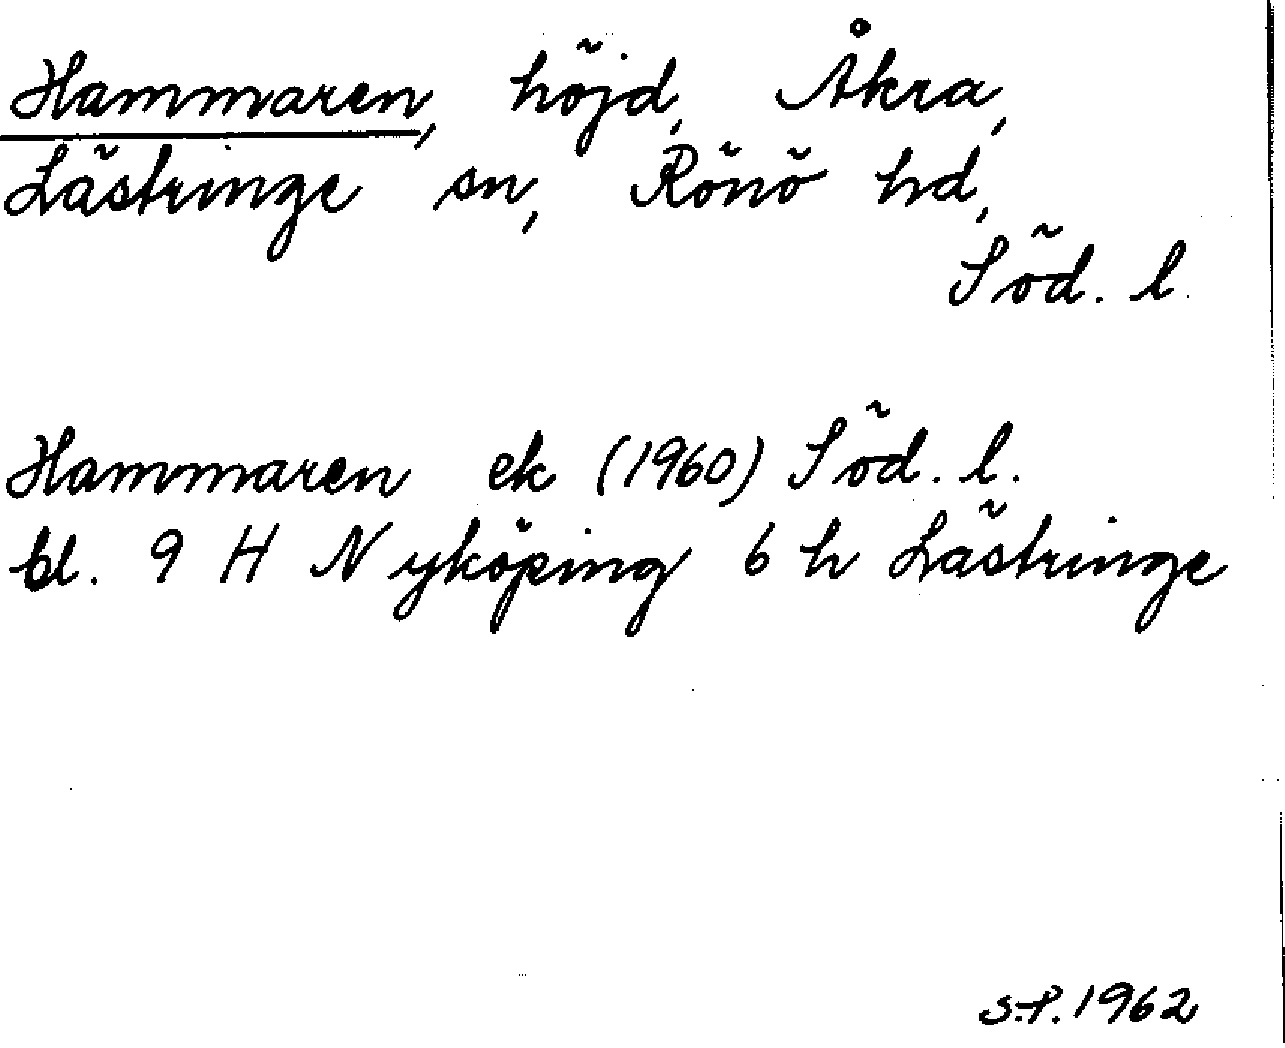 Hammaren, höjd, Åkra,
Lästringe sn, Rönö hd,
Söd. l.
Hammaren ek (1960) Söd. l.
bl. 9 H Nyköping 6 h Lästringe
S.P. 1962